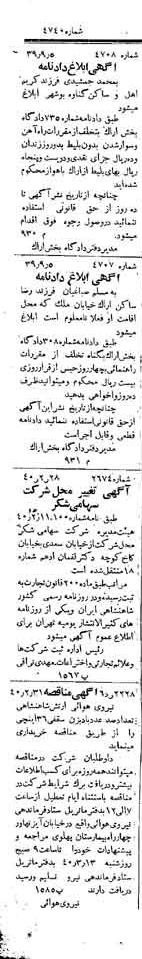 شماره ۴۷۴۰
شماره ۴۷۰۸ ۳۹٫۹٫۵
آگهی ابلاغ دادنامه
بمحمد جمشیدی فرزند کریم
اهل و ساکن گناوه بوشهر ابلاغ
میشود
طبق دادنامه شماره ۷۳۵ دادگاه
بخش اراک بتخلف از مقررات راه آهن
و سوار شدن بدون بلیط بدو روز زندان
و ده ریال جزای نقدی و دویست و پنجاه
ریال بهای بلیط از اراک باهواز محکوم
شده اید
چنانچه از تاریخ نشر آگهی تا
ده روز از حق قانونی استفاده
ننمائید در وصول رجوه فوق اقدام
میشود م ۹۳۰
مدیر دفتر دادگاه بخش اراک
شماره ۴۷۰۷ ۳۹٫۹٫۵
آگهی ابلاغ دادنامه
به مسلم صباغیان فرزند رضا
ساکن اراک خیابان ملک که محل
اقامت او فعلا نامعلوم است ابلاغ
میشود
طبق دادنامه شماره ۳۰۸ دادگاه
بخش اراک بگناه تخلف از مقررات
راهنمائی بچهار روز حبس از قرار روزی
بیست ریال محکوم و میتوانید ظرف
ده روز واخواهی بدهید
چنانچه از تاریخ نشر این آگهی
از حق قانونی استفاده ننمائید دادنامه
قطعی و قابل اجراست
مدیر دفتر دادگاه بخش اراک
م ۹۳۱
شماره ۲۶۷۴ ۴۰٫۲٫۲۸
آگهی تغییر محل شرکت
سهامی شکر
طبق نامه شماره ۱۱٫۱۰۰ ۴۰٫۲٫۱۱
هیئت مدیره شرکت سهامی شکر
محل شرکت از خیابان سعدی بخیابان
کاخ کوچه دکتر لقمان ادهم شماره
۱۸ منتقل شده است
مراتب طبق ماده ۲۰۰ قانون تجارت به
ثبت رسیده و در روزنامه رسمی کشور
شاهنشاهی ایران و یکی از روزنامه
های کثیر الانتشار یومیه تهران برای
اطلاع عموم آگهی میشود
رئیس اداره ثبت شرکت ها
و علائم تجارتی و اختراعات. مهدی نراقی
پ ۱۵۶۷
آگهی مناقصه ۴۰٫۲٫۳۱
نیروی هوائی ارتش شاهنشاهی
تعداد صد عدد بادبزن سقفی ۳۶ اینچی
را از طریق مناقصه خریداری
مینماید
داوطلبان شرکت در مناقصه
میتوانند همه روزه برای کسب اطلاعات
بیشتر و دریافت برک شرایط شرکت در
مناقصه باستثناء ایام تعطیل از ساعت
۷ الی ۱۲ بدفتر ماتریل ستاد فرماندهی
نیروی هوائی واقع در خیابان آیزنهاور
چهار راه بیمارستان پهلوی مراجعه و
پیشنهادات خود را تا ساعت ۹ صبح
روز شنبه ۴۰٫۳٫۱۳ بدفتر ماتریل
ستاد فرماندهی نیرو تسلیم و رسید
دریافت دارند پ ۱۵۸۵
نیروی هوائی